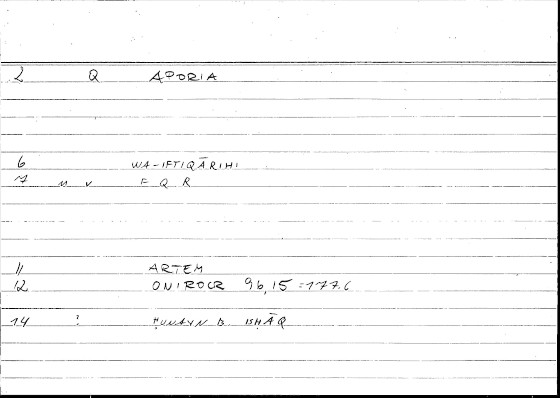 2 Q APORIA
6 WA-IFTIQĀRIHI
7 M V F Q R
11 ARTEM
12 ONIROCR 96,15=177.6
14 : ḤUNAYN B. ISḤĀQ